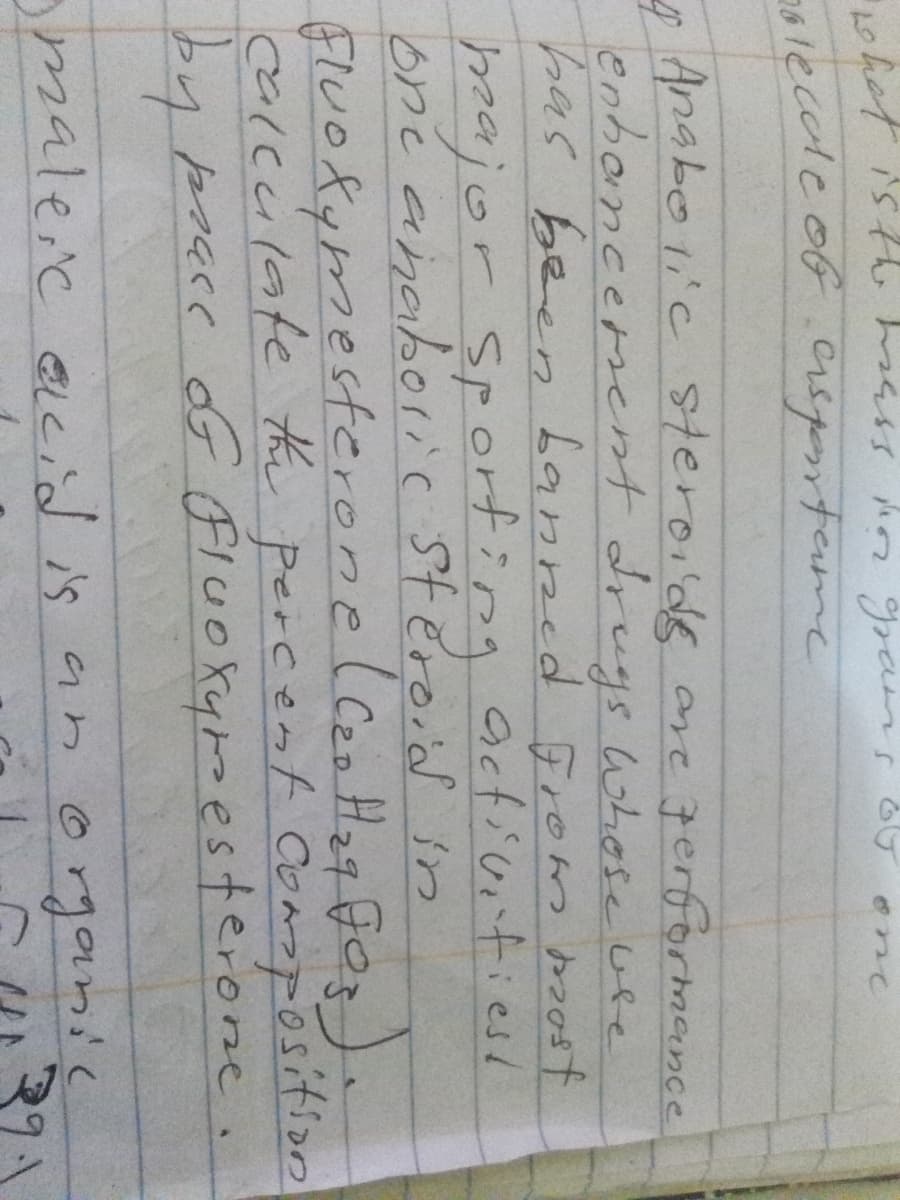 what is the mass in grams of one
molecule of aspartame
Anabolic steroids are performance
enhancement drugs whose use
has been banned from most
major sporting activities
one anabolic steroid in
fluoxymesterone (C20H29FO3).
calculate the percent composition
by mass of fluoxymesterone.
maleic acid is an organic
39.1